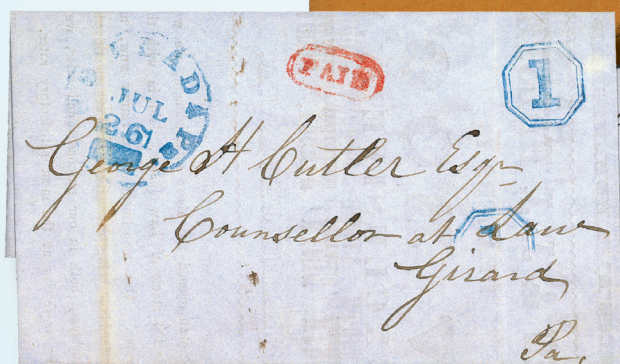 PAID
1
JUL
26
George H Cutler Esqr
Counsellor at Law
Girard
Pa.